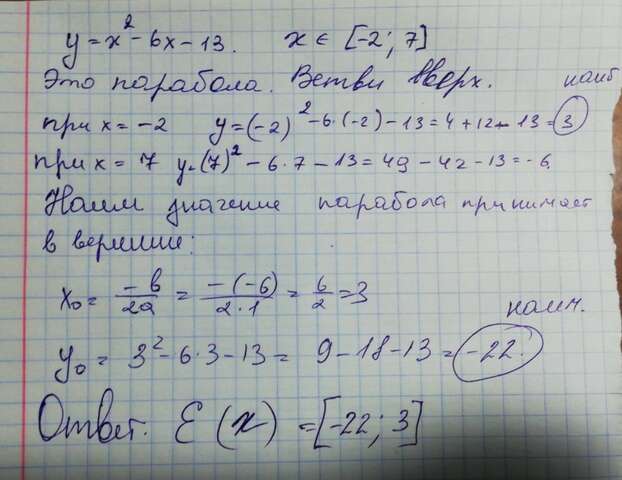 y = x² - 6x - 13. x ∈ [-2; 7]
Это парабола. Ветви вверх. наиб
при x = -2 y = (-2)² - 6·(-2) - 13 = 4 + 12 - 13 = 3
при x = 7 y = (7)² - 6·7 - 13 = 49 - 42 - 13 = -6.
Наим значение парабола принимает
в вершине:
x₀ = -b/2a = -(-6)/2·1 = 6/2 = 3
наим.
y₀ = 3² - 6·3 - 13 = 9 - 18 - 13 = -22.
Ответ. E(x) = [-22; 3]